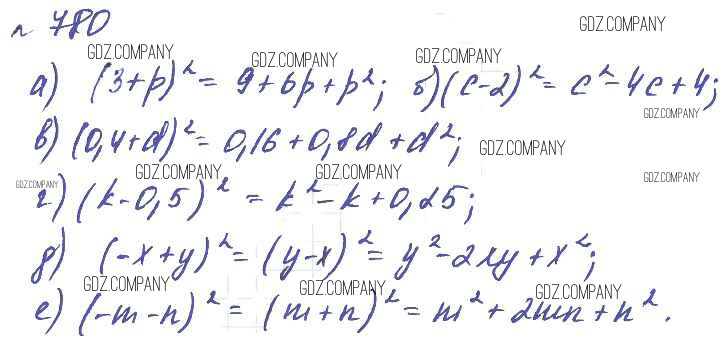 № 780
GDZ.COMPANY
GDZ.COMPANY GDZ.COMPANY GDZ.COMPANY
а) (3+p)² = 9+6p+p²; б) (c-2)² = c²-4c+4;
GDZ.COMPANY
в) (0,4+d)² = 0,16+0,8d+d²;
GDZ.COMPANY
GDZ.COMPANY GDZ.COMPANY GDZ.COMPANY GDZ.COMPANY
г) (k-0,5)² = k²-k+0,25;
д) (-x+y)² = (y-x)² = y²-2xy+x²;
GDZ.COMPANY GDZ.COMPANY GDZ.COMPANY
е) (-m-n)² = (m+n)² = m²+2mn+n².